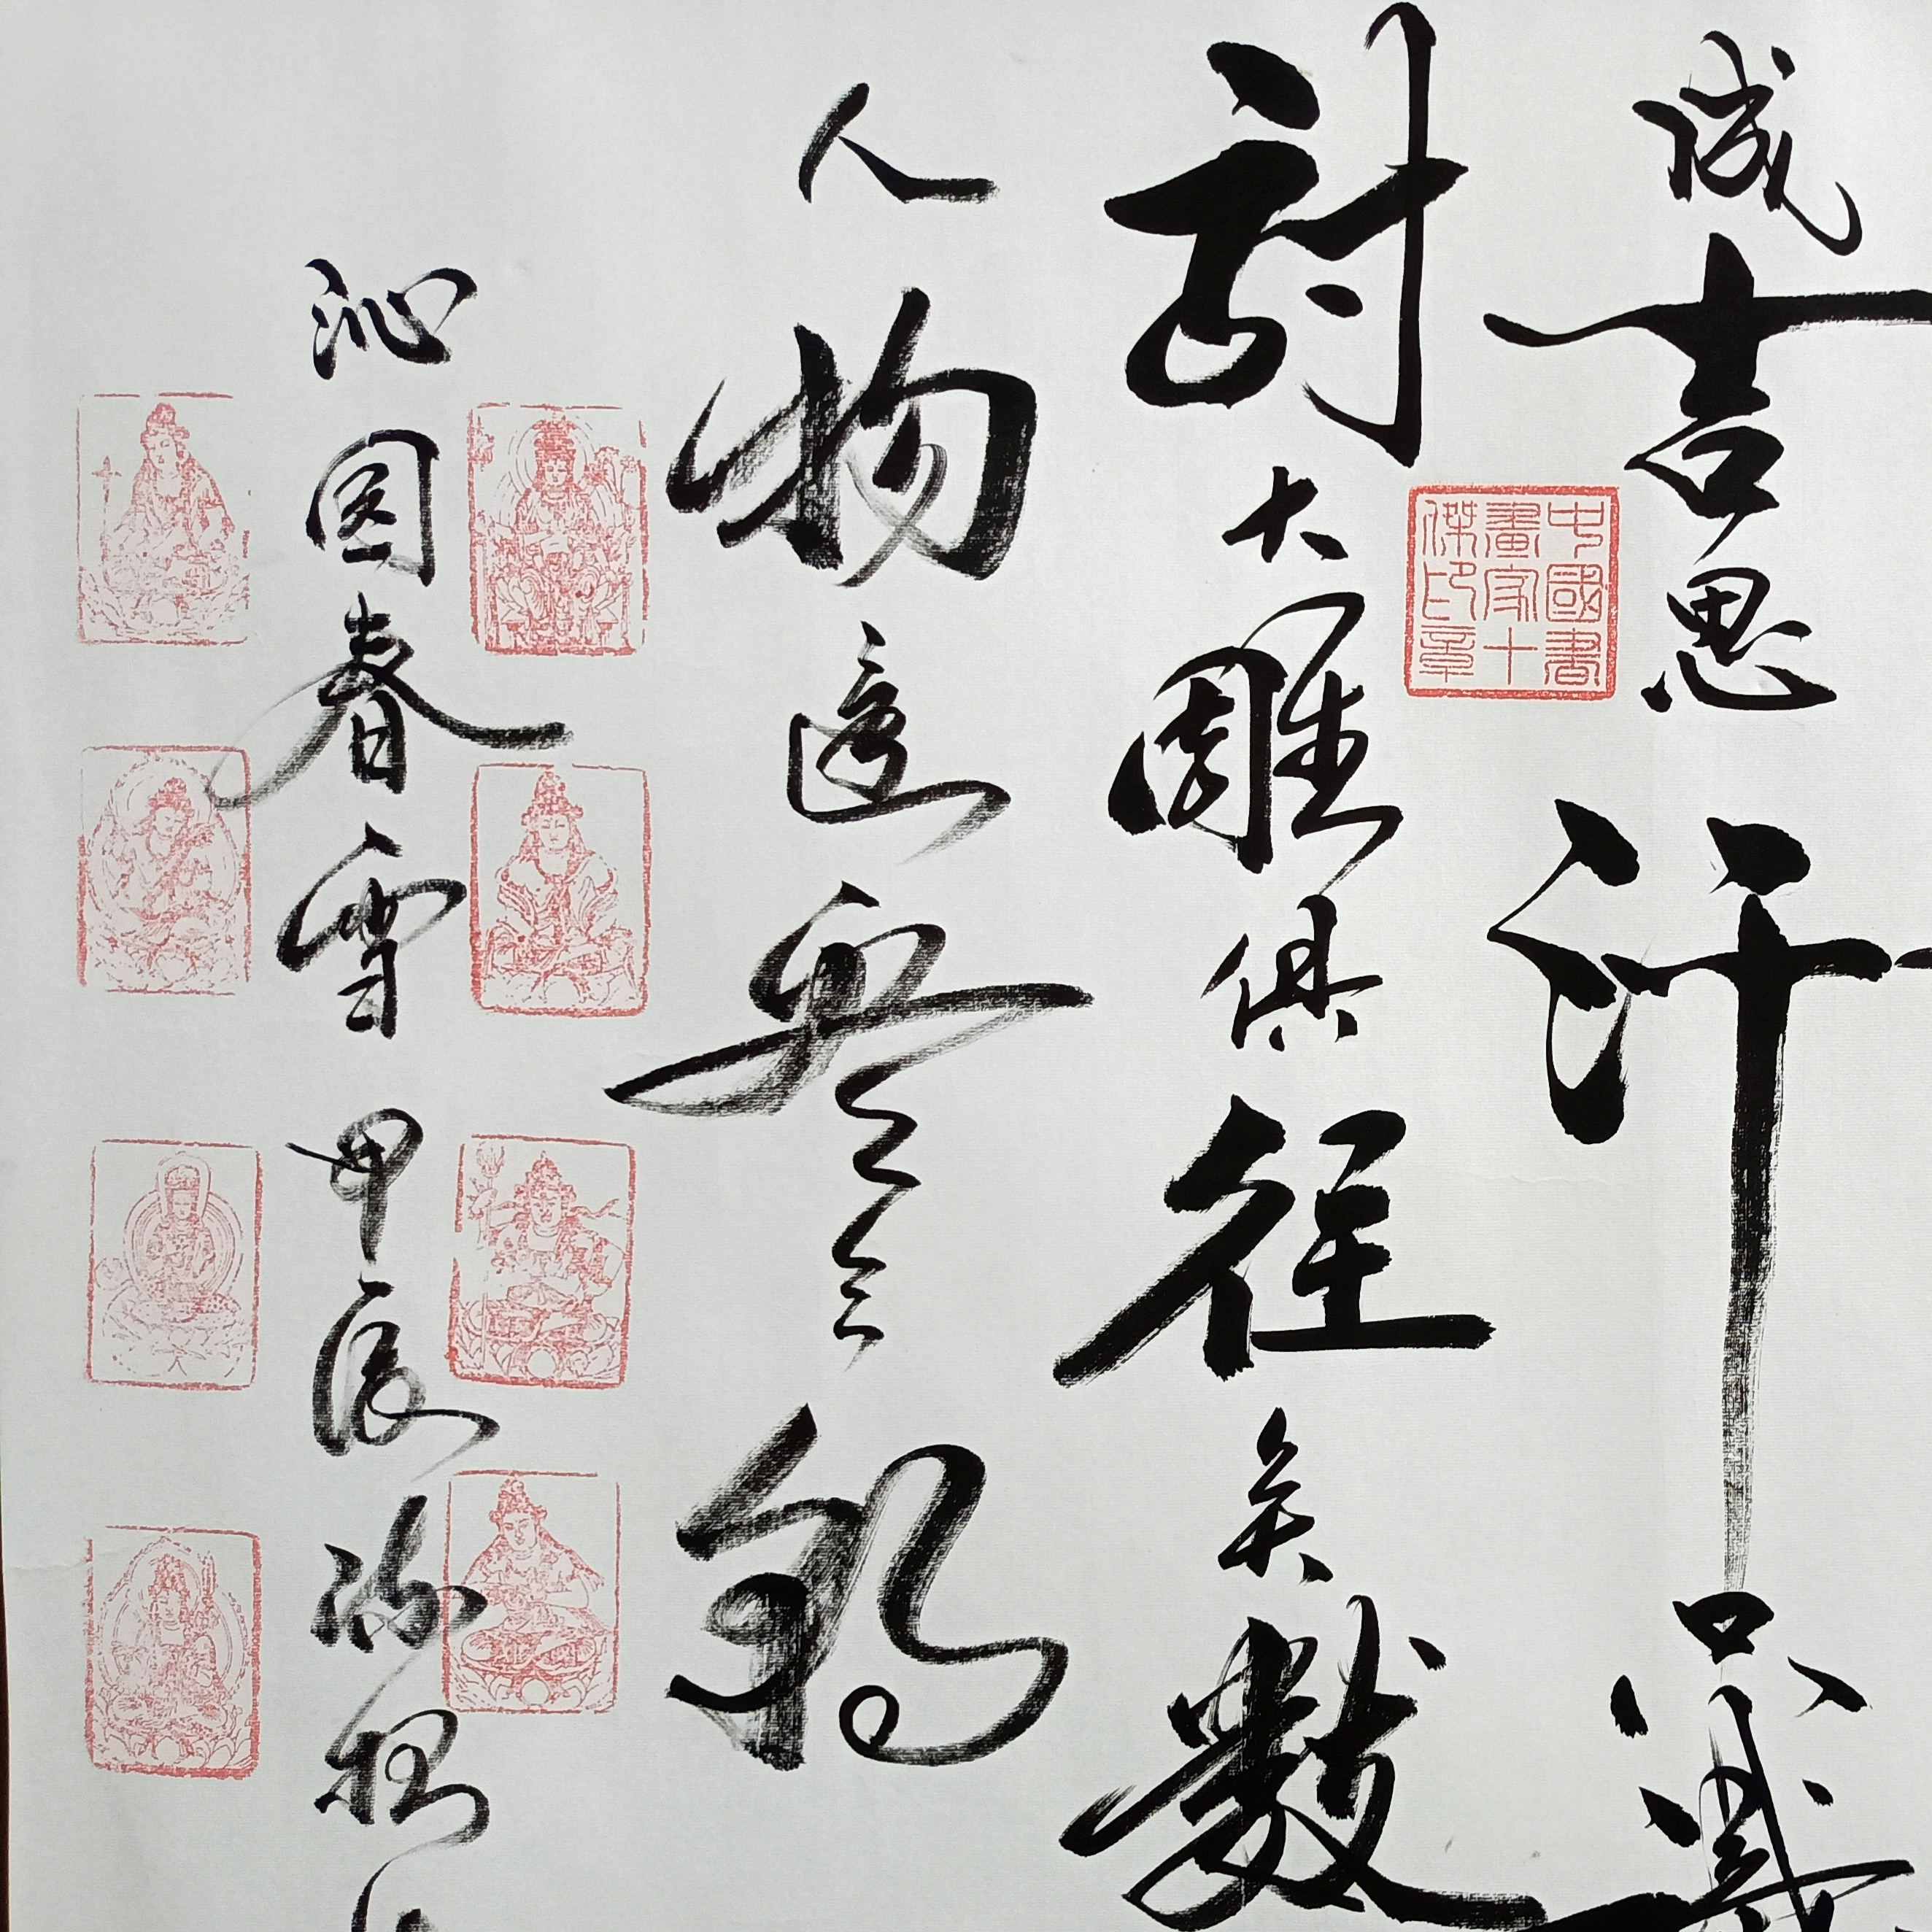 成吉思汗只識
射大雕俱往矣數
人物還看今朝
沁園春雪甲辰
中國書
畫家十
傑印章